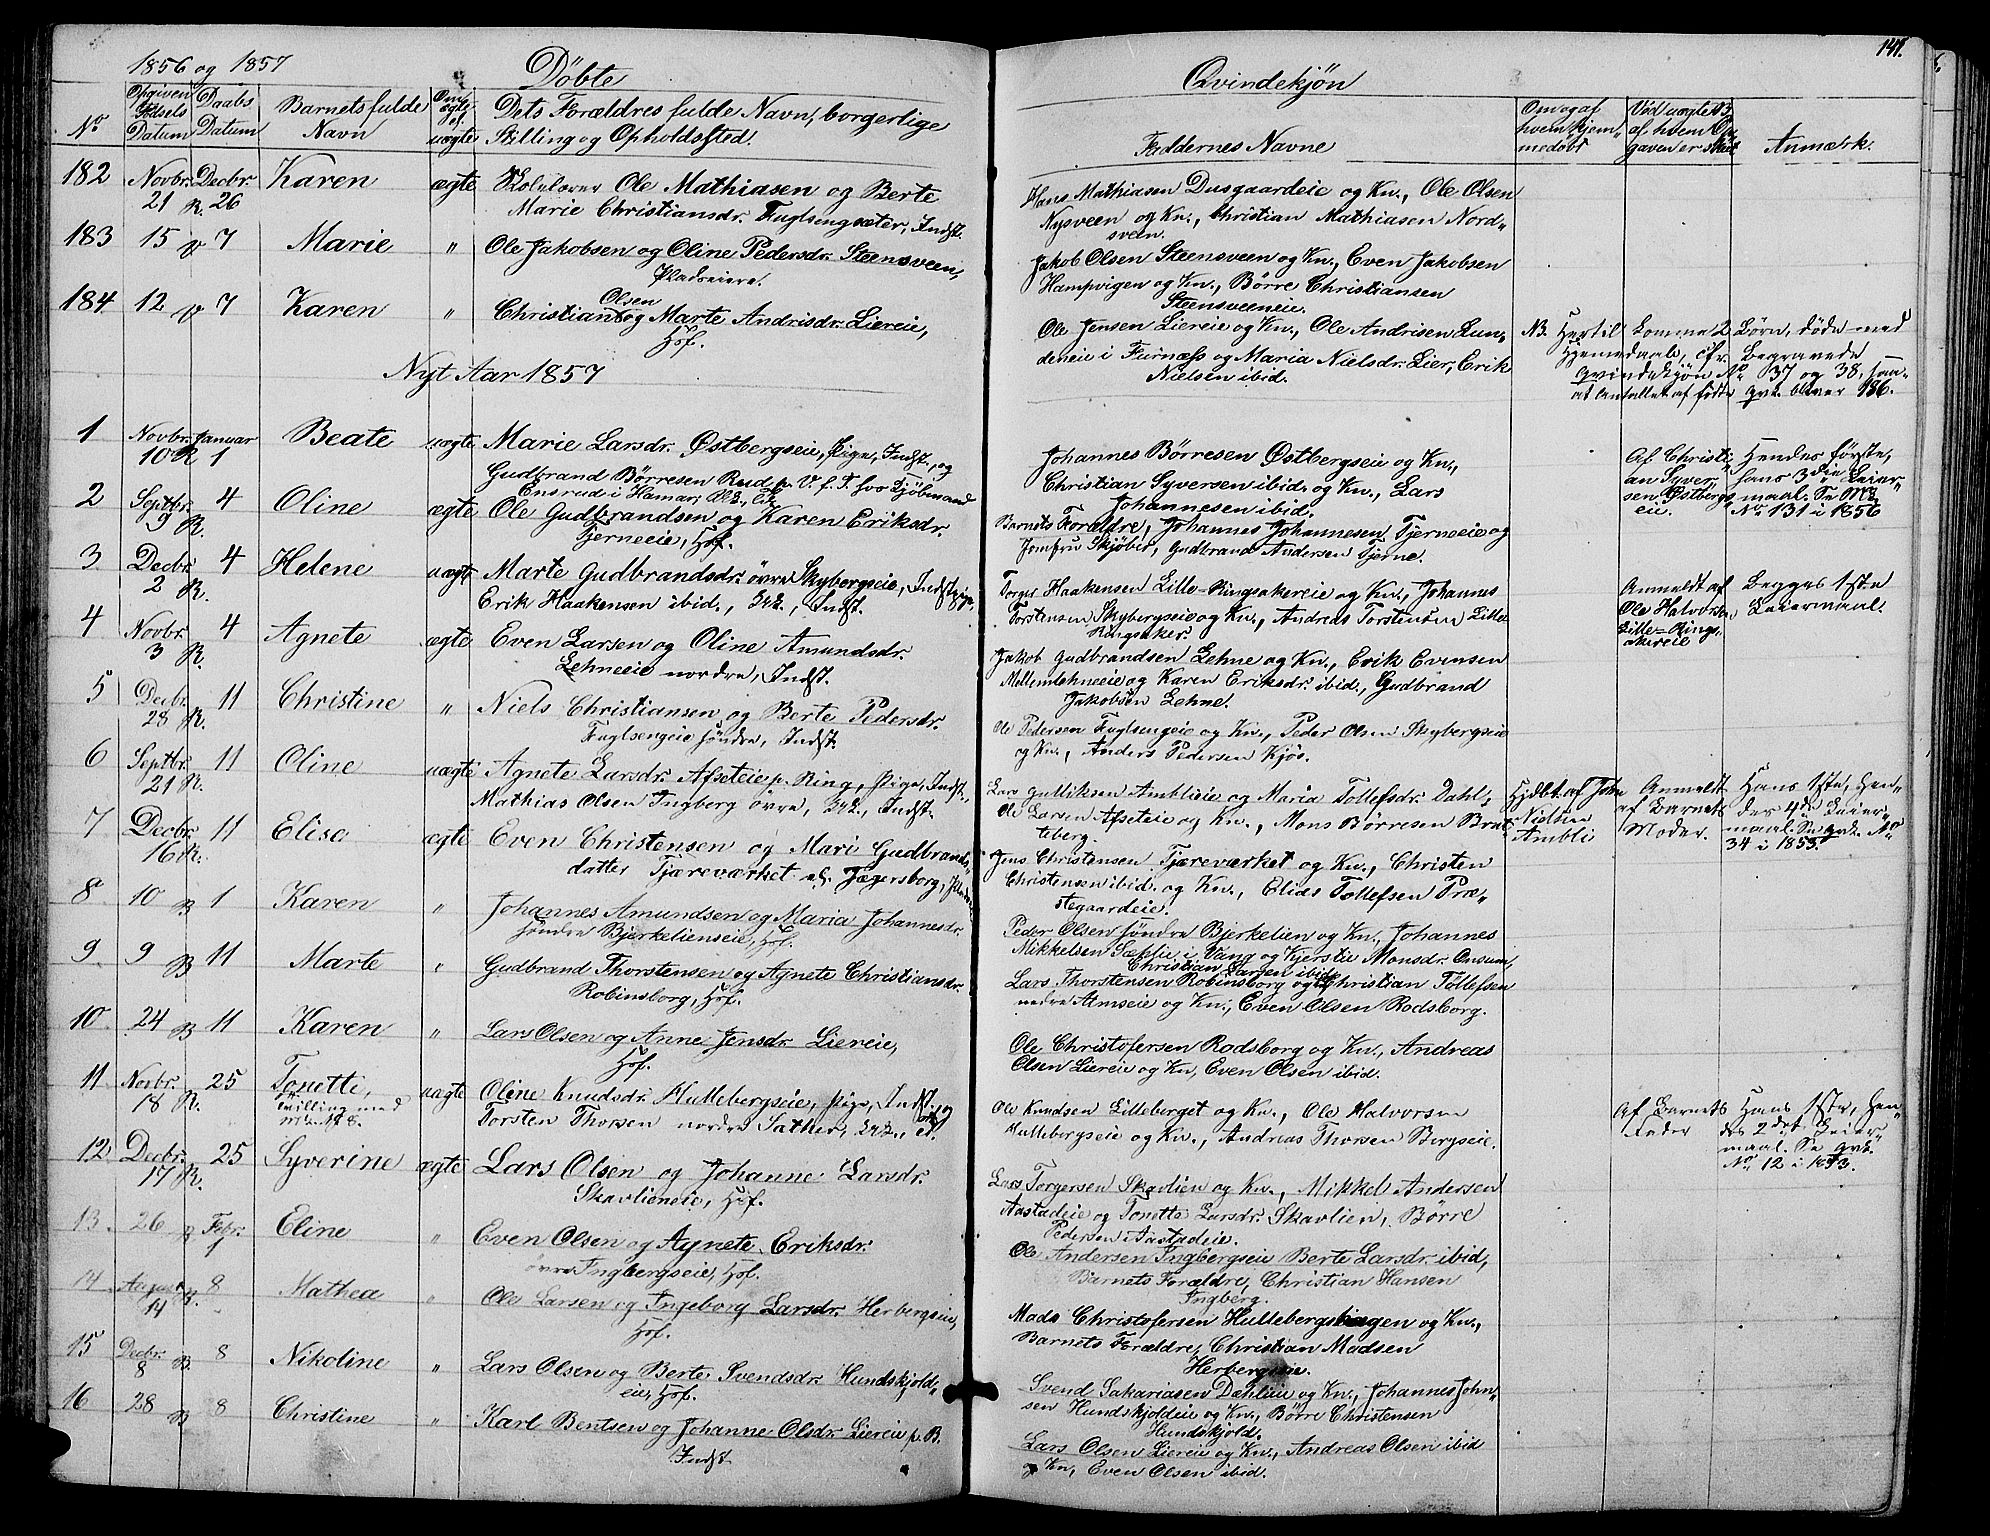 1856 og 1857
Döbte
Qvindekjön
141.
No
Opgiven Födsels Datum
Daabs Datum
Barnets fulde Navn
Om ægte el. uægte
Dets Forældres fulde Navn, borgerlige
Stilling og Opholdssted.
Faddernes Navne
Om og af hvem hjemmedöbt
Ved uægte B. af hvem Opgaven er skeet
Anmærk.
182 Novbr. 21 R. Decbr. 26 Karen ægte Skolelærer Ole Mathiasen og Berte
Marie Christiansdr. Fuglsengsæter, Indst.
Hans Mathiasen Dusgaardeie og Kn., Ole Olsen
Nysveen og Kn., Christian Mathiasen Nord„
sveen.
183 15 V 7 Marie " Ole Jakobsen og Oline Pedersdr. Steensveen,
Pladseiere.
Jakob Olsen Steensveen og Kn., Even Jakobsen
Hampvigen og Kn., Börre Christiansen
Steensveeneie.
184 12 V 7 Karen " Christian Olsen og Marte Andrisdr. Liereie,
Hof.
Ole Jensen Liereie og Kn., Ole Andrisen Lun„
deneie i Furnæss og Maria Nielsdr. Lier, Erik
Nielsen ibid.
NB. Hertil komme 2 Börn, döde med
Hjemmedaab, cfr. Begravede
Qvindekjön No 37 og 38, saa„
at Antallet af födte qvk. bliver 186.
Nyt Aar 1857
1 Novbr. 10 R Januar 1 Beate uægte Marie Larsdr. Östbergseie, Pige, Indst., og
Gudbrand Börresen Rud p. V. f. T. hos Kjöbmand
Ensrud i Hamar,
Johannes Börresen Östbergseie og Kn.,
Christian Syversen ibid. og Kn., Lars
Johannesen ibid.
Af Christi„
an Syver„
sen Östbergs„
eie.
Hendes förste,
hans 3die Leier„
maal. Se Mk.
No 131 i 1856
2 Septbr. 9 R. 4 Oline ægte Ole Gudbrandsen og Karen Eriksdr.
Tjerneeie, Hof.
Barnets Forældre, Johannes Johannesen Tjerneeie og
Jomfru Skjöber, Gudbrand Andersen Tjerne.
3 Decbr. 2 R. 4 Helene uægte Marte Gudbrandsdr. övre Skybergseie, Indst. pige,
Erik Haakensen ibid., Indst.
Torger Haakensen Lille-Ringsakereie og Kn., Johannes
Torstensen Skybergseie og Kn., Andreas Torstensen Lille
Ringsaker.
Anmeldt af
Ole Halvorsen
Lille-Rings„
akereie
Begges 1ste
Leiermaal.
4 Novbr. 3 R. 4 Agnete ægte Even Larsen og Oline Amundsdr.
Lehneeie nordre, Indst.
Jakob Gudbrandsen Lehne og Kn., Erik Evensen
Mellemlehneeie og Karen Eriksdr. ibid., Gudbrand
Jakobsen Lehne.
5 Decbr. 28 R. 11 Christine " Niels Christiansen og Berte Pedersdr.
Fuglsengeie söndre, Indst.
Ole Pedersen Fuglsengeie og Kn., Peder Olsen Skybergseie
og Kn., Anders Pedersen Kjös.
6 Septbr. 21 R. 11 Oline uægte Agnete Larsdr. Afseteie p. Ring, Pige, Indst.,
Mathias Olsen Ingberg övre, Indst.
Lars Gulliksen Amblieie og Maria Tollefsdr. Dahl,
Ole Larsen Afseteie og Kn., Mons Börresen Brat„
teberg.
Hjdbt. af John
Nielsen
Ambli
Anmeldt
af Barnets
Moder.
Hans 1ste, Hen„
des 4de Leier„
maal. Se qvk. No
34 i 1853.
7 Decbr. 16 R. 11 Elise ægte Even Christensen og Mari Gudbrands„
datter Tjæreværket el. Jægersborg,
Jens Christensen Tjæreværket og Kn., Christen
Christensen ibid. og Kn., Elias Tollefsen Præ„
stegaardeie.
8 10 B 1 Karen " Johannes Amundsen og Maria Johannesdr.
söndre Bjerkelienseie, Hof.
Peder Olsen söndre Bjerkelien og Kn., Johannes
Mikkelsen Sæhlie i Vang og Kjerstie Monsdr. Onsum,
Christian Larsen ibid.
9 9 B 11 Marte " Gudbrand Thorstensen og Agnete Christiansdr.
Robinsborg, Hof.
Lars Thorstensen Robinsborg og Christian Tollefsen
nedre Amseie og Kn., Even Olsen Rodsborg.
10 24 B 11 Karen " Lars Olsen og Anne Jensdr. Liereie,
Hof.
Ole Christofersen Rodsborg og Kn., Andreas
Olsen Liereie og Kn, Even Olsen ibid.
11 Novbr. 18 R. 25 Tonette, uægte Oline Knudsdr. Hullebergseie, Pige, Indst. og
Tvilling med
Torsten Thorsen nordre Sather,
Ole Knudsen Lilleberget og Kn., Ole Halvorsen
Hullebergseie og Kn., Andreas Thorsen Bergseie.
Af Barnets
Fader
Hans 1ste, hen„
des 2det Leier„
maal. Se qvk.
No 12 i 1853.
12 Decbr. 17 R. 25 Syverine ægte Lars Olsen og Johanne Larsdr.
Skavlieneie, Hof.
Lars Torgersen Skavlien og Kn., Mikkel Andersen
Aastadeie og Tonette Larsdr. Skavlien, Börre
Pedersen Aastadeie.
13. 26 R Febr. 1 Eline " Even Olsen og Agnete Eriksdr.
övre Ingbergseie, Hof.
Ole Andersen Ingbergseie Berte Larsdr. ibid,
Barnets Forældre, Christian Hansen
Ingberg.
14 August 14 B. 8 Mathea " Ole Larsen og Ingeborg Larsdr. Herbergseie,
Hof.
Mads Christofersen Hullebergshagen og Kn.,
Barnets Forældre, Christian Madsen
Herbergseie.
15 Decbr. 8 B 8 Nikoline " Lars Olsen og Berte Svendsdr. Hundskjold„
eie, Hof.
Svend Sakariasen Dahlieie og Kn., Johannes John„
sen Hundskjoldeie og Kn., Börre Christensen
Hundskjold.
16 28 B 8 Christine " Karl Bentsen og Johanne Olsdr. Liereie p. B.
Indst.
Lars Olsen Liereie og Kn., Andreas Olsen ibid
og Kn, Even Olsen ibid.